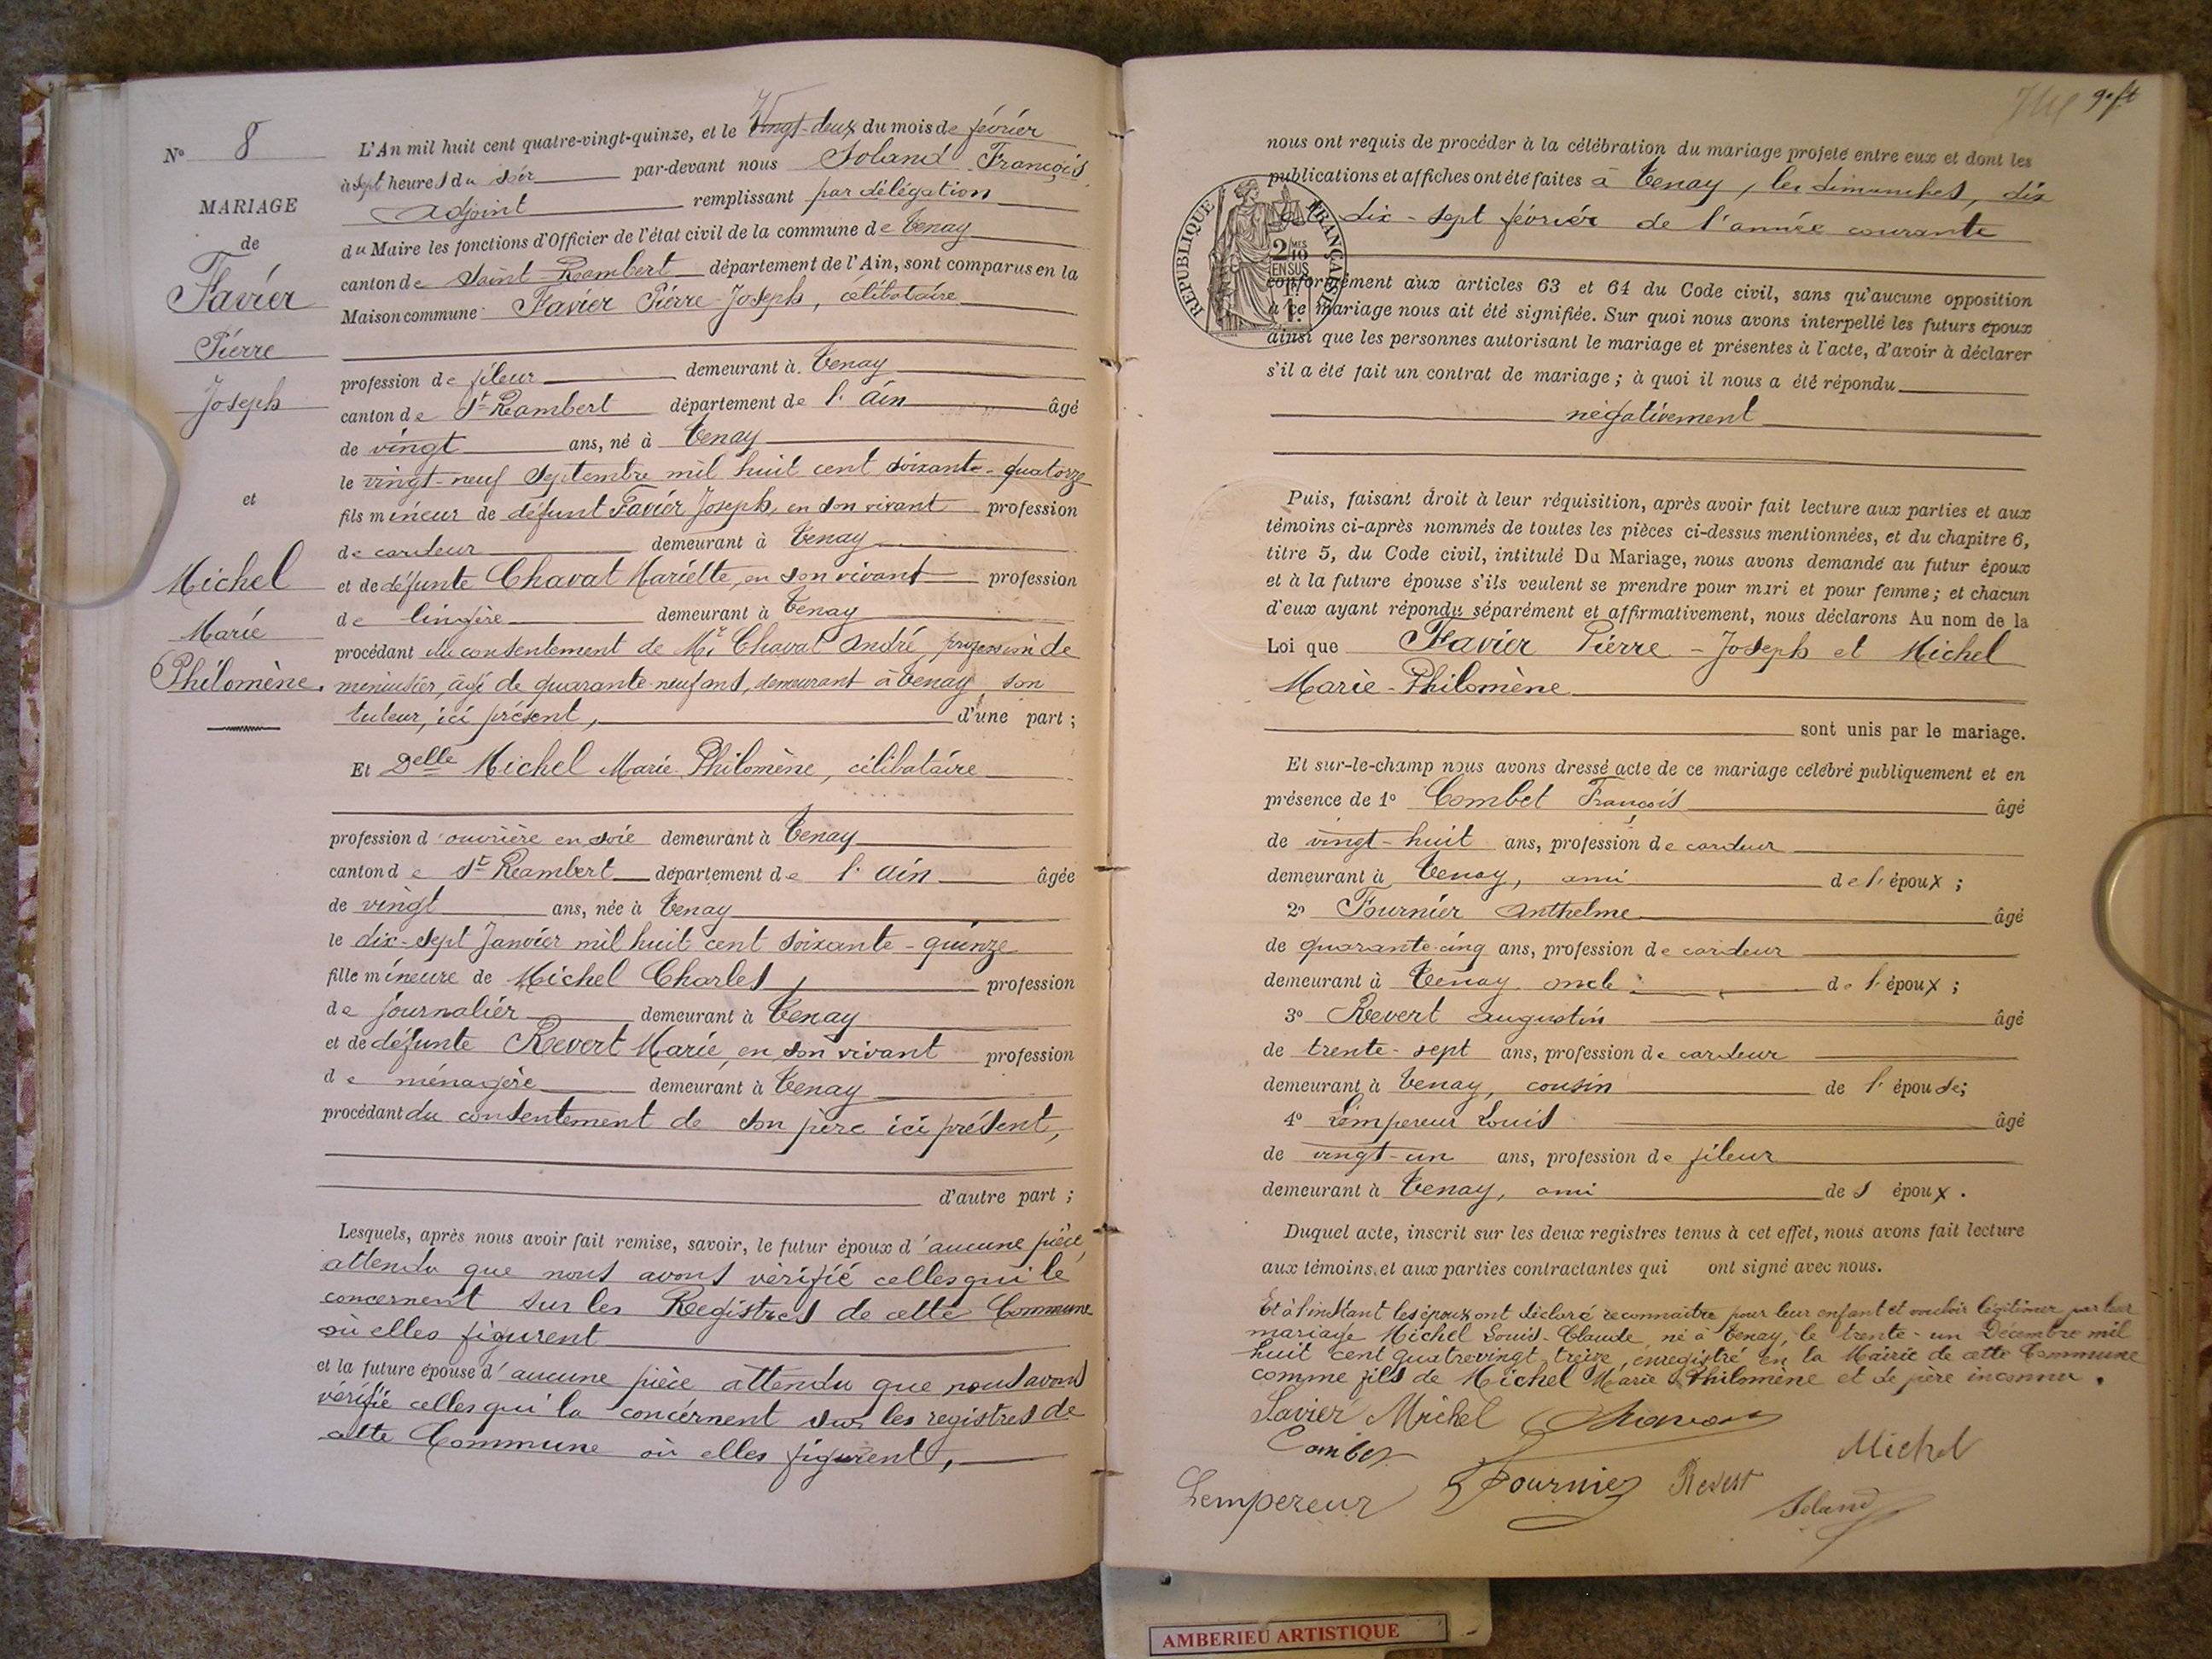 N° 8
MARIAGE
de
Favier
Pierre
Joseph
et
Michel
Marie
Philomène.
L'An mil huit cent quatre-vingt-quinze, et le Vingt-deux du mois de février
à sept heures du soir par-devant nous Soland François
Adjoint remplissant par délégation
du Maire les fonctions d'Officier de l'état civil de la commune de Tenay
canton de Saint-Rambert département de l'Ain, sont comparus en la
Maison commune Favier Pierre-Joseph, célibataire
profession de fileur demeurant à Tenay
canton de St Rambert département de l'ain âgé
de vingt ans, né à Tenay
le vingt-neuf Septembre mil huit cent soixante-quatorze
fils mineur de défunt Favier Joseph, en son vivant profession
de cardeur demeurant à Tenay
et de défunte Chavat Mariette, en son vivant profession
de lingère demeurant à Tenay
procédant du consentement de Mr Chavat André, profession de
menuisier, âgé de quarante-neuf ans, demeurant à Tenay, son
tuteur, ici présent, d'une part ;
Et Delle Michel Marie Philomène, célibataire
profession d'ouvrière en soie demeurant à Tenay
canton de St Rambert département de l'ain âgée
de vingt ans, née à Tenay
le dix-sept Janvier mil huit cent soixante-quinze
fille mineure de Michel Charles, profession
de journalier demeurant à Tenay
et de défunte Revert Marie, en son vivant profession
de ménagère demeurant à Tenay
procédant du consentement de son père ici présent,
d'autre part ;
Lesquels, après nous avoir fait remise, savoir, le futur époux d'aucune pièce,
attendu que nous avons vérifié celles qui le
concernent sur les Registres de cette Commune
où elles figurent
et la future épouse d'aucune pièce attendu que nous avons
vérifié celles qui la concernent sur les registres de
cette Commune où elles figurent,
9e ft
nous ont requis de procéder à la célébration du mariage projeté entre eux et dont les
publications et affiches ont été faites à Tenay, les dimanches, dix
dix-sept février de l'année courante
REPUBLIQUE FRANÇAISE
2/10 MES
EN SUS
conformément aux articles 63 et 64 du Code civil, sans qu'aucune opposition
à ce mariage nous ait été signifiée. Sur quoi nous avons interpellé les futurs époux
ainsi que les personnes autorisant le mariage et présentes à l'acte, d'avoir à déclarer
s'il a été fait un contrat de mariage ; à quoi il nous a été répondu
négativement
Puis, faisant droit à leur réquisition, après avoir fait lecture aux parties et aux
témoins ci-après nommés de toutes les pièces ci-dessus mentionnées, et du chapitre 6,
titre 5, du Code civil, intitulé Du Mariage, nous avons demandé au futur époux
et à la future épouse s'ils veulent se prendre pour mari et pour femme ; et chacun
d'eux ayant répondu séparément et affirmativement, nous déclarons Au nom de la
Loi que Favier Pierre-Joseph et Michel
Marie-Philomène
sont unis par le mariage.
Et sur-le-champ nous avons dressé acte de ce mariage célébré publiquement et en
présence de 1° Combet François âgé
de vingt-huit ans, profession de cardeur
demeurant à Tenay, ami de l'époux ;
2° Fournier Anthelme âgé
de quarante-cinq ans, profession de cardeur
demeurant à Tenay oncle de l'époux ;
3° Revert Augustin âgé
de trente-sept ans, profession de cardeur
demeurant à Tenay, cousin de l'épouse;
4° Lempereur Louis âgé
de vingt-un ans, profession de fileur
demeurant à Tenay, ami de l époux.
Duquel acte, inscrit sur les deux registres tenus à cet effet, nous avons fait lecture
aux témoins, et aux parties contractantes qui ont signé avec nous.
Et à l'instant les époux ont déclaré reconnaître pour leur enfant et vouloir légitimer par leur
mariage Michel Louis-Claude né à Tenay, le trente-un Décembre mil
huit cent quatrevingt-treize, enregistré en la Mairie de cette Commune
comme fils de Michel Marie Philomène et de père inconnu.
Favier Michel
Combet Michel
Lempereur Fournier Revert Soland
AMBERIEU ARTISTIQUE